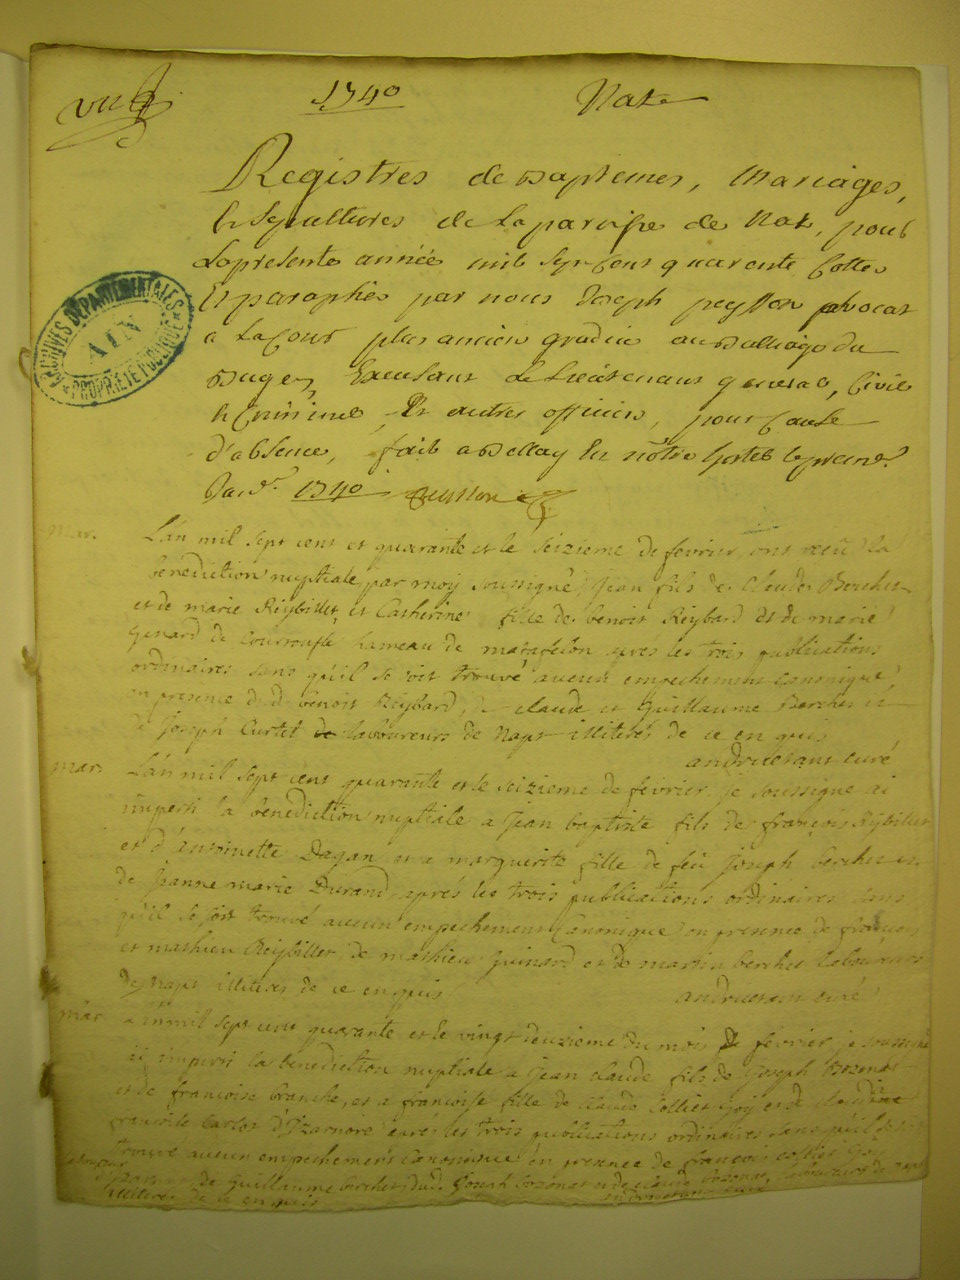 1740
Nax
ARCHIVES DEPARTEMENTALES
AIN
PROPRIETE PUBLIQUE
Registres de Baptemes, Mariages,
& Sepultures de la paroisse de Nax, pour
La presente année mil sept cent quarente Cottes
Et paraphés par nous Joseph peysson advocat
a La Cour plus ancien gradué au Balliage du
Bugey, Excusant le Lieutenant general, Civil
& Criminel, Et autres officiers, pour Cause
d'absence, fait a Bellay En nôtre hostel le premr
Janvr. 1740 peysson
mar. L'an mil sept cent et quarante et le seizieme de fevrier, ont reçu la
benediction nuptiale par moy soussigné, Jean fils de Claude Berchet
et de marie Reybillet, et Catherine fille de benoit Reybard et de marie
Genard de Courrousse hameau de matafelon apres les trois publications
ordinaires sans qu'il se soit trouvé aucun empechement canonique,
en presence de d. benoit Reybard, de claude et Guillaume Berchet et
de Joseph Curtet laboureurs de Napt illiterés de ce enquis
andruetant curé
mar. L'an mil sept cent quarante et le seizieme de fevrier je soussigné ai
imparti la benediction nuptiale a Jean baptiste fils de françois Reybillet
et d'antoinette Dagan et a marguerite fille de feu Joseph berchet et
de Jeanne marie Durand, aprés les trois publications ordinaires sans
qu'il se soit trouvé aucun empechement Canonique en presence de françois
et mathieu Reybillet, de mathieu Guinard et de martin berchet laboureurs
de Napt illiterés de ce enquis
andruetant curé
mar. L'an mil sept cent quarante et le vingt deuzieme du mois de fevrier, je soussigné
ai imparti la benediction nuptiale a Jean claude fils de Joseph Bozonet
et de françoise branche, et a françoise fille de Claude Collet Goy et de
françoise Carlod d'Izarnore aprés les trois publications ordinaires sans qu'il se soit
trouvé aucun empechement Canonique en presence de françois collet Goy
de guillaume berchet dud. Joseph bozonet et de claude bozonet, laboureurs de Napt
illiterés de ce enquis
andruetant curé